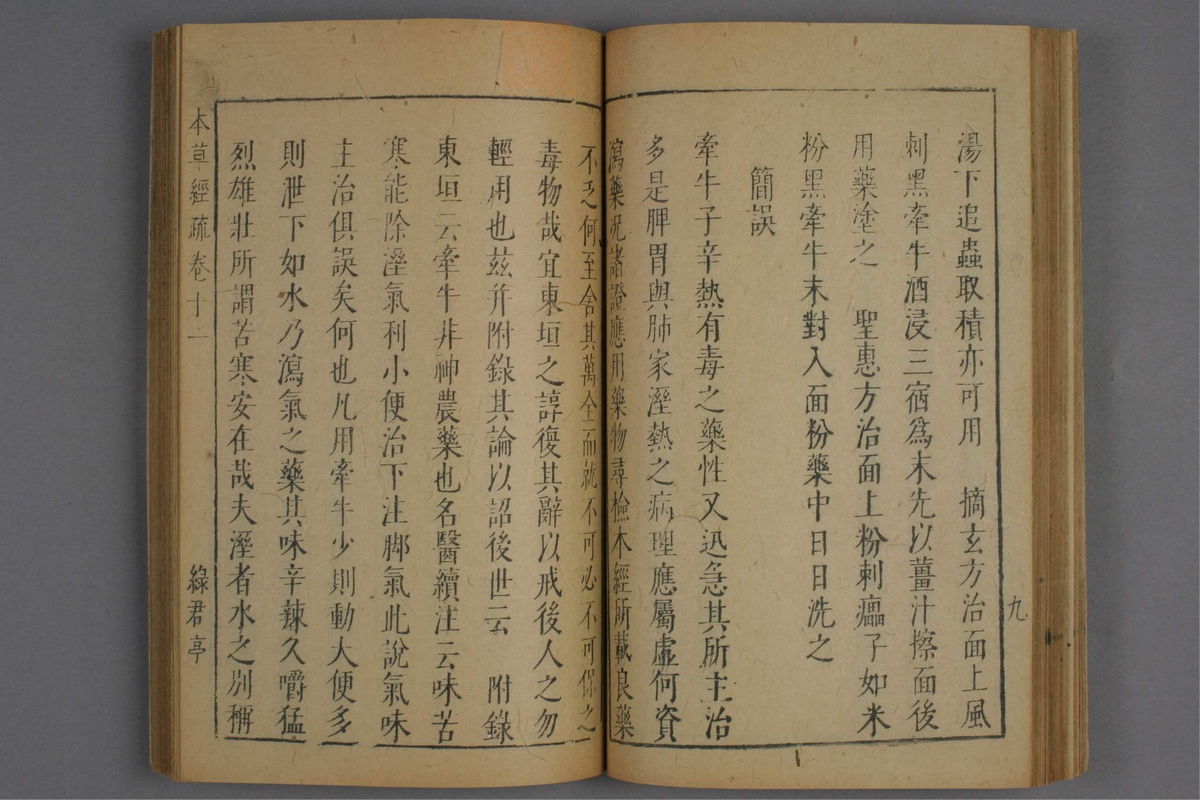 九
湯下追蟲取積亦可用　摘玄方治面上風
刺黑牽牛酒浸三宿爲末先以薑汁擦面後
用藥塗之　聖惠方治面上粉刺㿔子如米
粉黑牽牛末對入面粉藥中日日洗之
簡誤
牽牛子辛熱有毒之藥性又迅急其所主治
多是脾胃與肺家溼熱之病理應屬虛何資
瀉藥況諸證應用藥物尋檢本經所載良藥
不乏何至舍其萬全而就不可必不可保之
毒物哉宜東垣之諄復其辭以戒後人之勿
輕用也茲幷附錄其論以詔後世云　附錄
東垣云牽牛非神農藥也名醫續注云味苦
寒能除溼氣利小便治下注脚氣此說氣味
主治俱誤矣何也凡用牽牛少則動大便多
則泄下如水乃瀉氣之藥其味辛辣久嚼猛
烈雄壯所謂苦寒安在哉夫溼者水之別稱
本草經疏卷十一
綠君亭